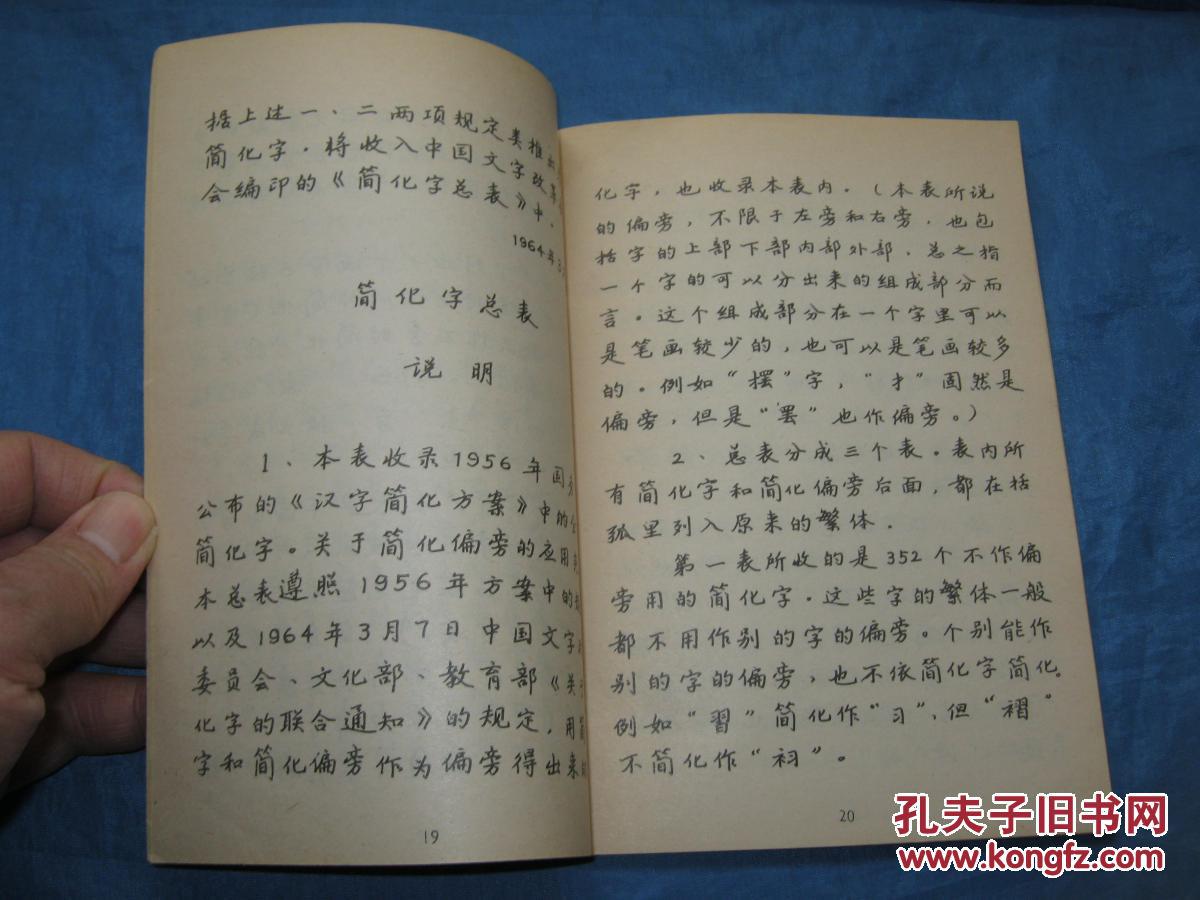 据上述一、二两项规定类推
简化字．将收入中国文字改革
会编印的《简化字总表》中．
1964年3
简化字总表
说明
1、本表收录1956年国务
公布的《汉字简化方案》中的
简化字。关于简化偏旁的应用
本总表遵照1956年方案中的
以及1964年3月7日中国文字
委员会、文化部、教育部《关
化字的联合通知》的规定，用简
字和简化偏旁作为偏旁得出来
19
化字，也收录本表内。（本表所说
的偏旁，不限于左旁和右旁．也包
括字的上部下部内部外部．总之指
一个字的可以分出来的组成部分而
言。这个组成部分在一个字里可以
是笔画较少的，也可以是笔画较多
的。例如“摆”字，“扌”固然是
偏旁，但是“罢”也作偏旁。）
2、总表分成三个表．表内所
有简化字和简化偏旁后面，都在括
弧里列入原来的繁体．
第一表所收的是352个不作偏
旁用的简化字．这些字的繁体一般
都不用作别的字的偏旁。个别能作
别的字的偏旁，也不依简化字简化。
例如“習”简化作“习”，但“褶”
不简化作“
”。
20
孔夫子旧书网
www.kongfz.com